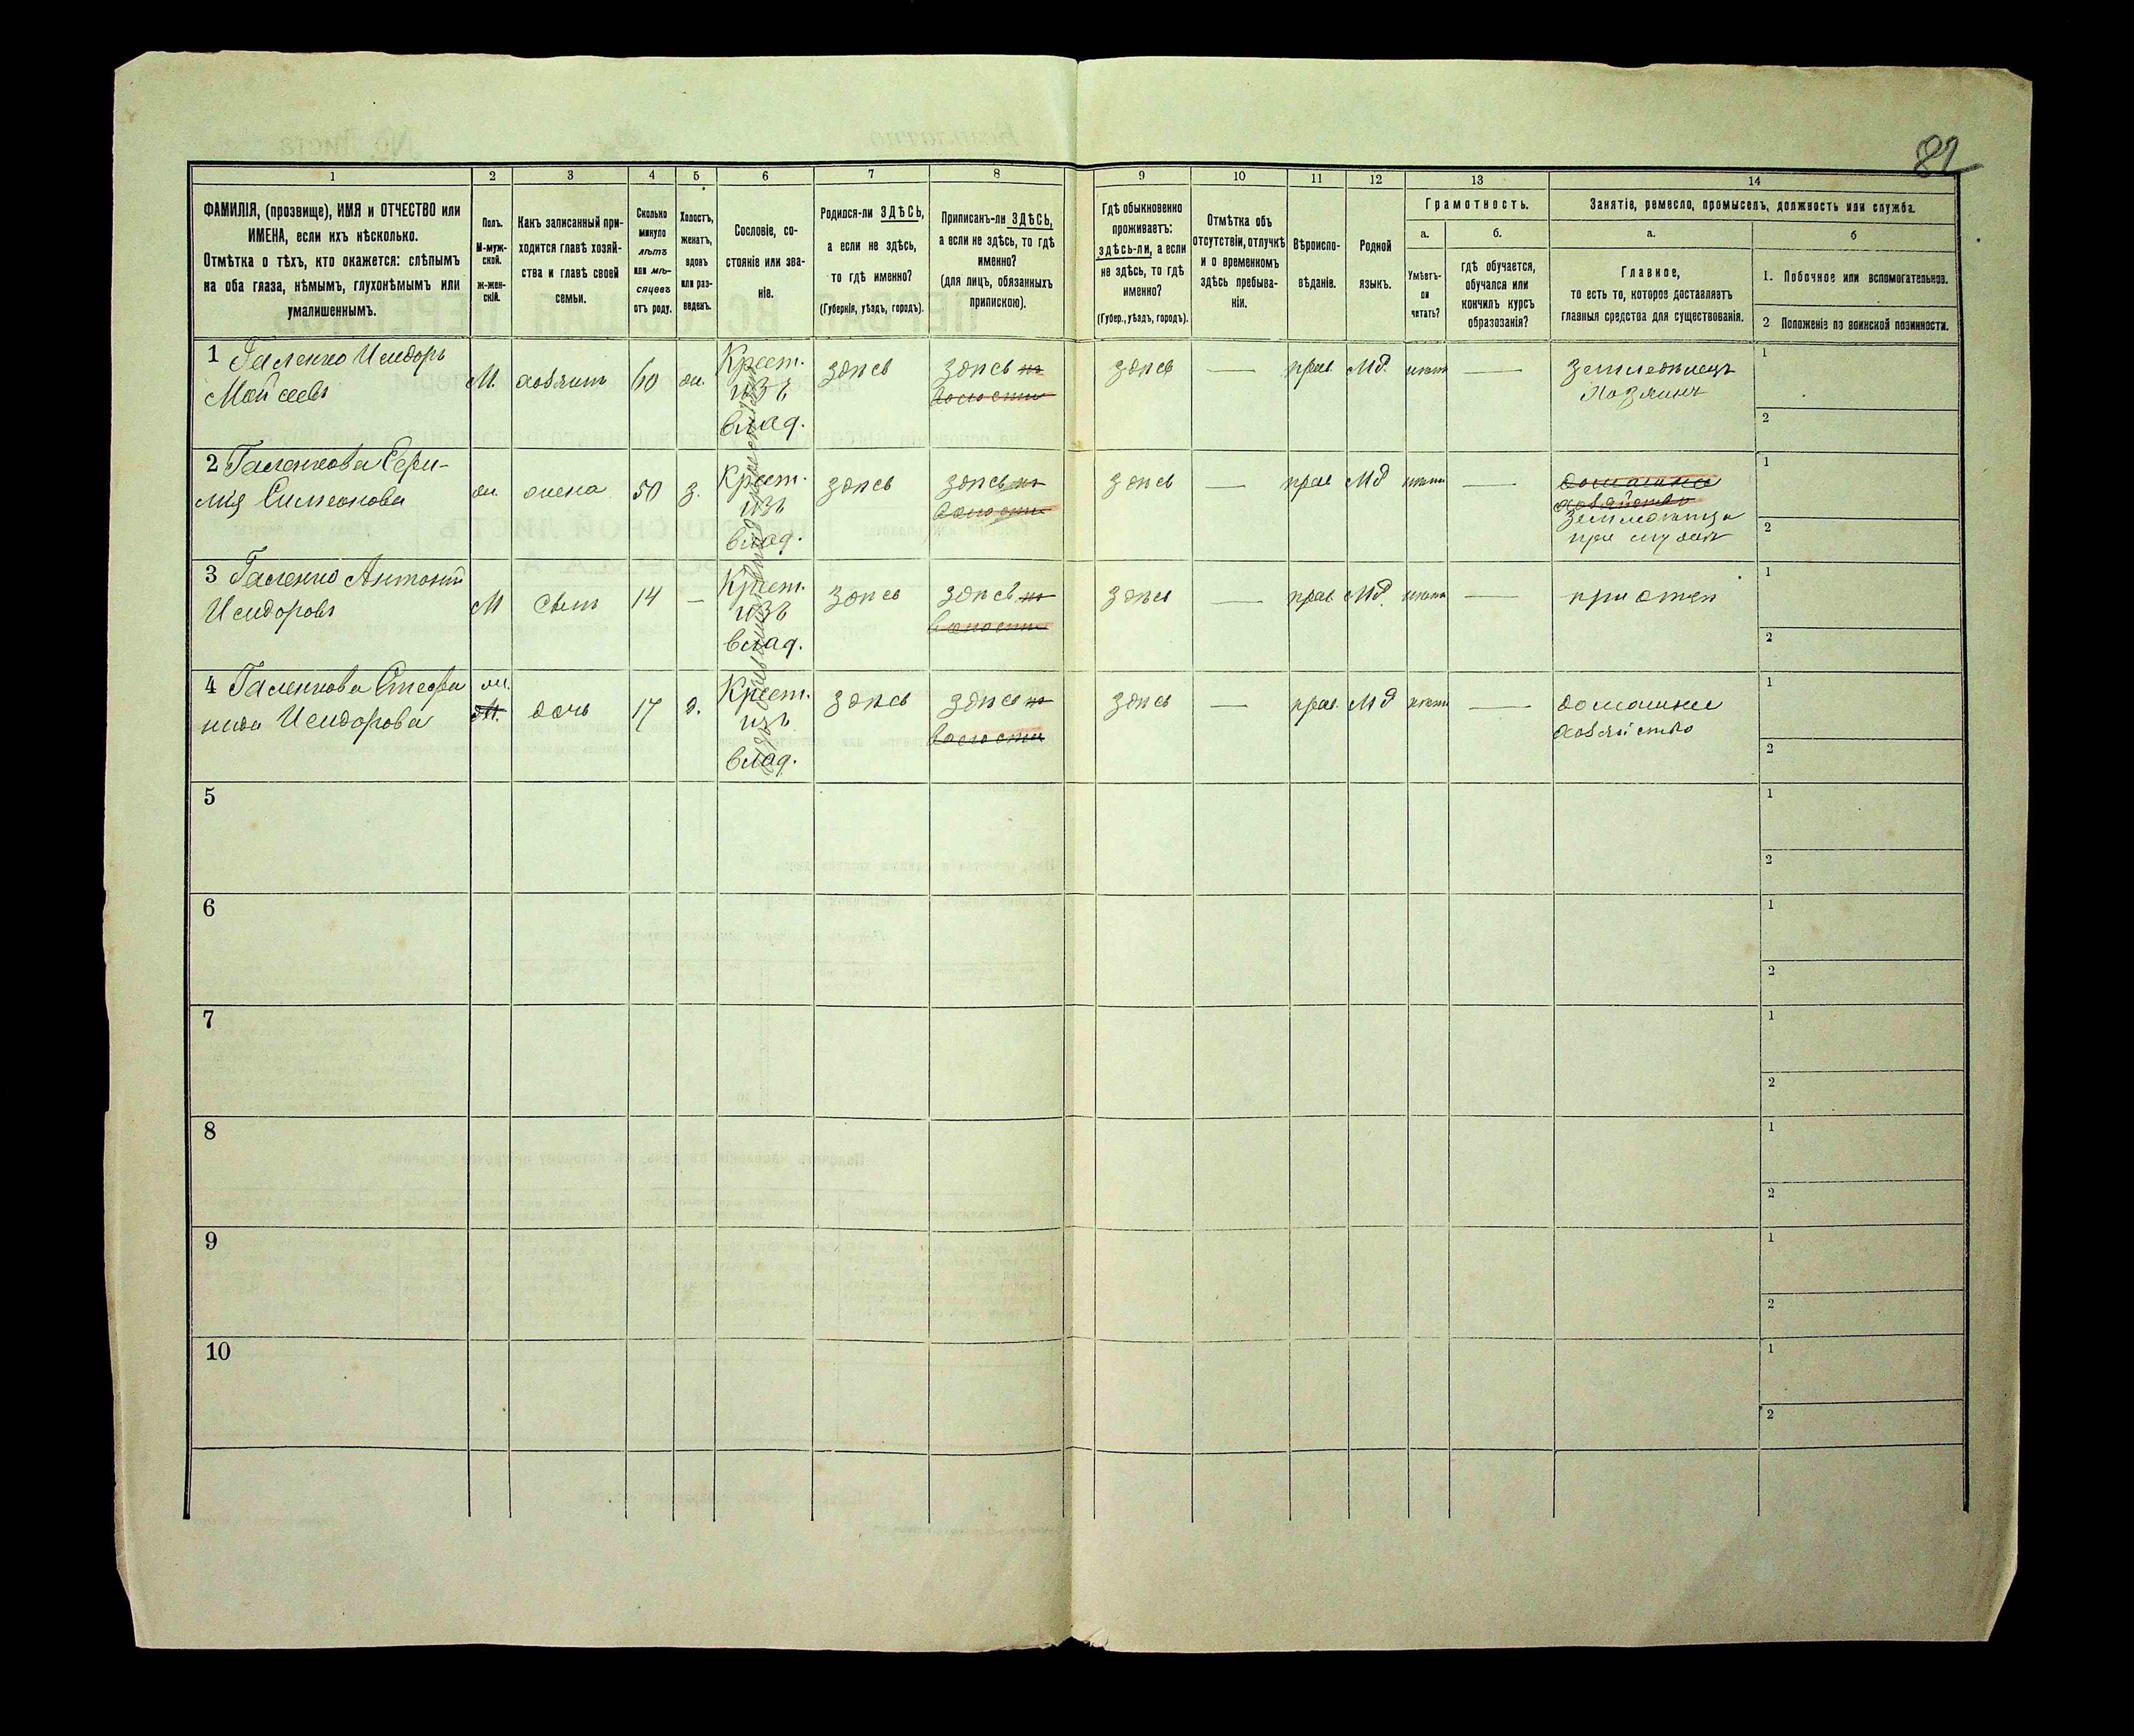 82
1 2 3 4 5 6 7 8 9 10 11 12 13 14
ФАМИЛІЯ, (прозвище), ИМЯ и ОТЧЕСТВО или
ИМЕНА, если ихъ нѣсколько.
Отмѣтка о тѣхъ, кто окажется: слѣпымъ
на оба глаза, нѣмымъ, глухонѣмымъ или
умалишеннымъ.
Полъ.
М-муж-
ской.
Ж-жен-
скій.
Какъ записанный при-
ходится главѣ хозяй-
ства и главѣ своей
семьи.
Сколько
минуло
лѣтъ
или мѣ-
сяцевъ
отъ роду.
Холостъ,
женатъ,
вдовъ
или раз-
веденъ.
Сословіе, со-
стояніе или зва-
ніе.
Родился-ли ЗДѢСЬ,
а если не здѣсь,
то гдѣ именно?
(Губернія, уѣздъ, городъ).
Приписанъ-ли ЗДѢСЬ,
а если не здѣсь, то гдѣ
именно?
(для лицъ, обязанныхъ
припискою).
Гдѣ обыкновенно
проживаетъ:
здѣсь-ли, а если
не здѣсь, то гдѣ
именно?
(Губер., уѣздъ, городъ).
Отмѣтка объ
отсутствіи, отлучкѣ
и о временномъ
здѣсь пребыва-
ніи.
Вѣроиспо-
вѣданіе.
Родной
языкъ.
Грамотность.
а.
Умѣетъ-
ли
читать?
б.
гдѣ обучается,
обучался или
кончилъ курсъ
образованія?
Занятіе, ремесло, промыселъ, должность или служба.
а.
Главное,
то есть то, которое доставляетъ
главныя средства для существованія.
б
1. Побочное или вспомогательное.
2 Положеніе по воинской повинности.
1 Галенко Исидоръ
Мойсеевъ
М. хозяин 60 ж. Крест.
изъ
влад.
здѣсь здѣсь по
волости
здѣсь — прав. Мд. нѣтъ — земледѣлецъ
Хозяинъ
1
2
2 Галенкова Ефи-
мія Симеонова
ж. жена 50 з. Крест.
изъ
влад.
здѣсь здѣсь по
волости
здѣсь — прав Мд нѣтъ — домашнее
хозяйство
при мужѣ
1
2
3 Галенко Антоній
Исидоровъ
М сынъ 14 — Крест.
изъ
влад.
здѣсь здѣсь по
волости
здѣсь — прав Мд. нѣтъ — при отцѣ
1
2
4 Галенкова Стефа
нида Исидорова
ж.
М.
дочь 17 д. Крест.
изъ
влад.
здѣсь здѣсь по
волости
здѣсь — прав. Мд нѣтъ — домашнее
хозяйство
1
2
5
1
2
6
1
2
7
1
2
8
1
2
9
1
2
10
1
2